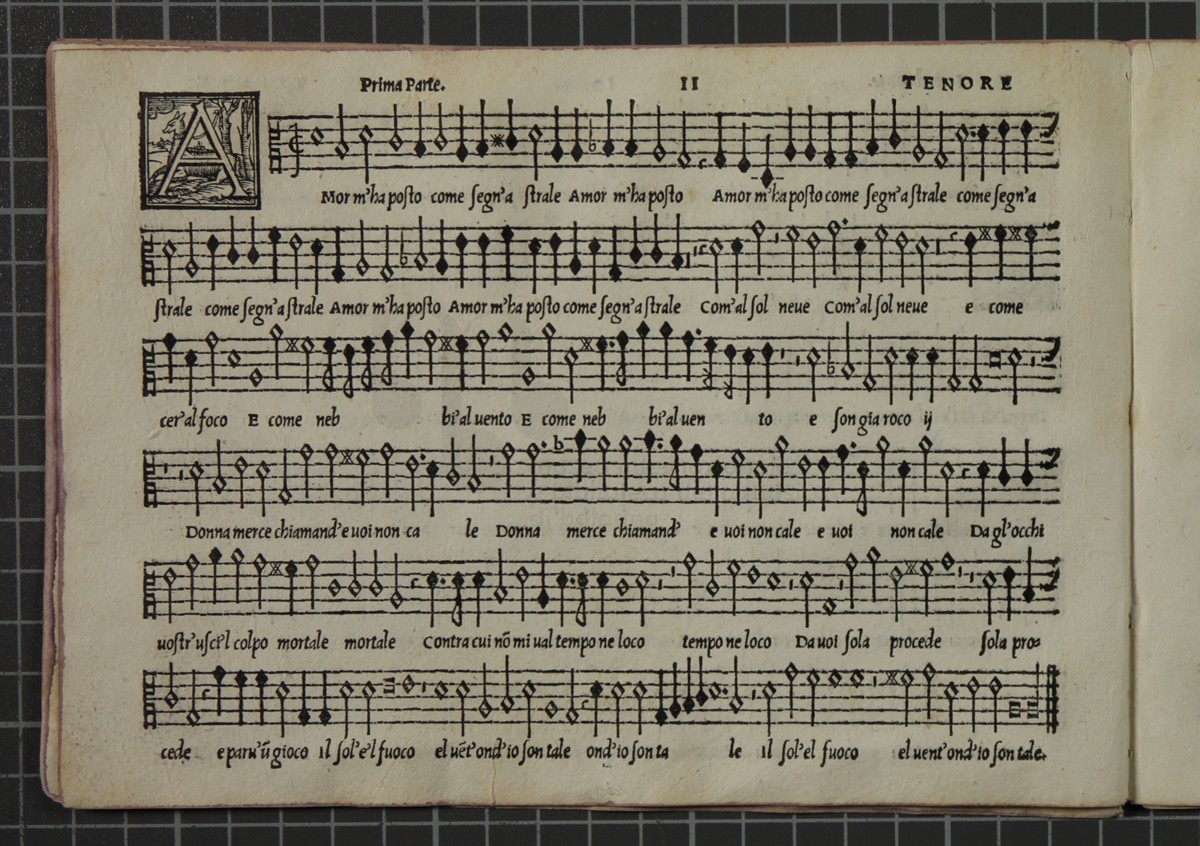 Prima Parte. II TENORE
AMor m'ha posto come segn'a strale Amor m'ha posto Amor m'ha posto come segn'a strale come segn'a
strale come segn'a strale Amor m'ha posto Amor m'ha posto come segn'a strale Com'al sol neue Com'al sol neue e come
cer'al foco E come neb bi'al uento E come neb bi'al uen to e son gia roco ij
Donna merce chiamand'e uoi non ca le Donna merce chiamand' e uoi non cale e uoi non cale Da gl'occhi
uostr'usci'l colpo mortale mortale Contra cui nõ mi ual tempo ne loco tempo ne loco Da uoi sola procede sola pro=
cede e paru'ũ gioco Il sol'e'l fuoco el uẽt'ond'io son tale ond'io son ta le Il sol'el fuoco el uent'ond'io son tale.